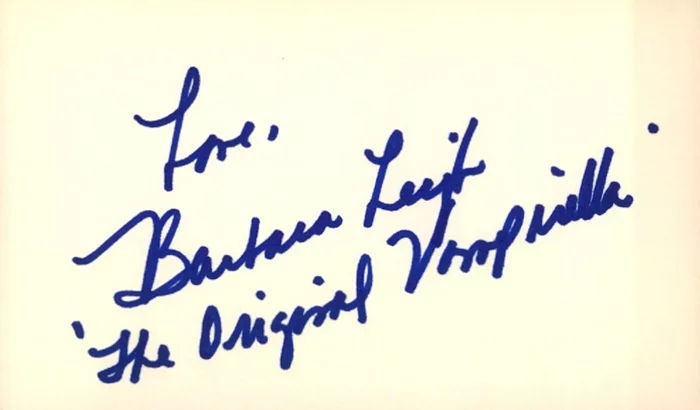 Love,
Barbara Leigh
"The Original Vampirella"